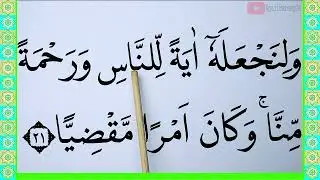 وَلِنَجْعَلَهٗٓ اٰيَةً لِّلنَّاسِ وَرَحْمَةً
مِّنَّا ۚ وَكَانَ اَمْرًا مَّقْضِيًّا ٢١